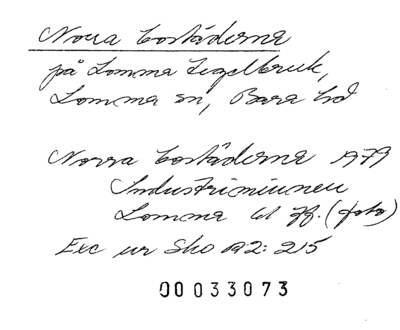 Norra bostäderna
på Lomma Tegelbruk,
Lomma sn, Bara hd
Norra bostäderna 1979
Industriminnen
Lomma
Exc ur Sko A2: 215
00033073